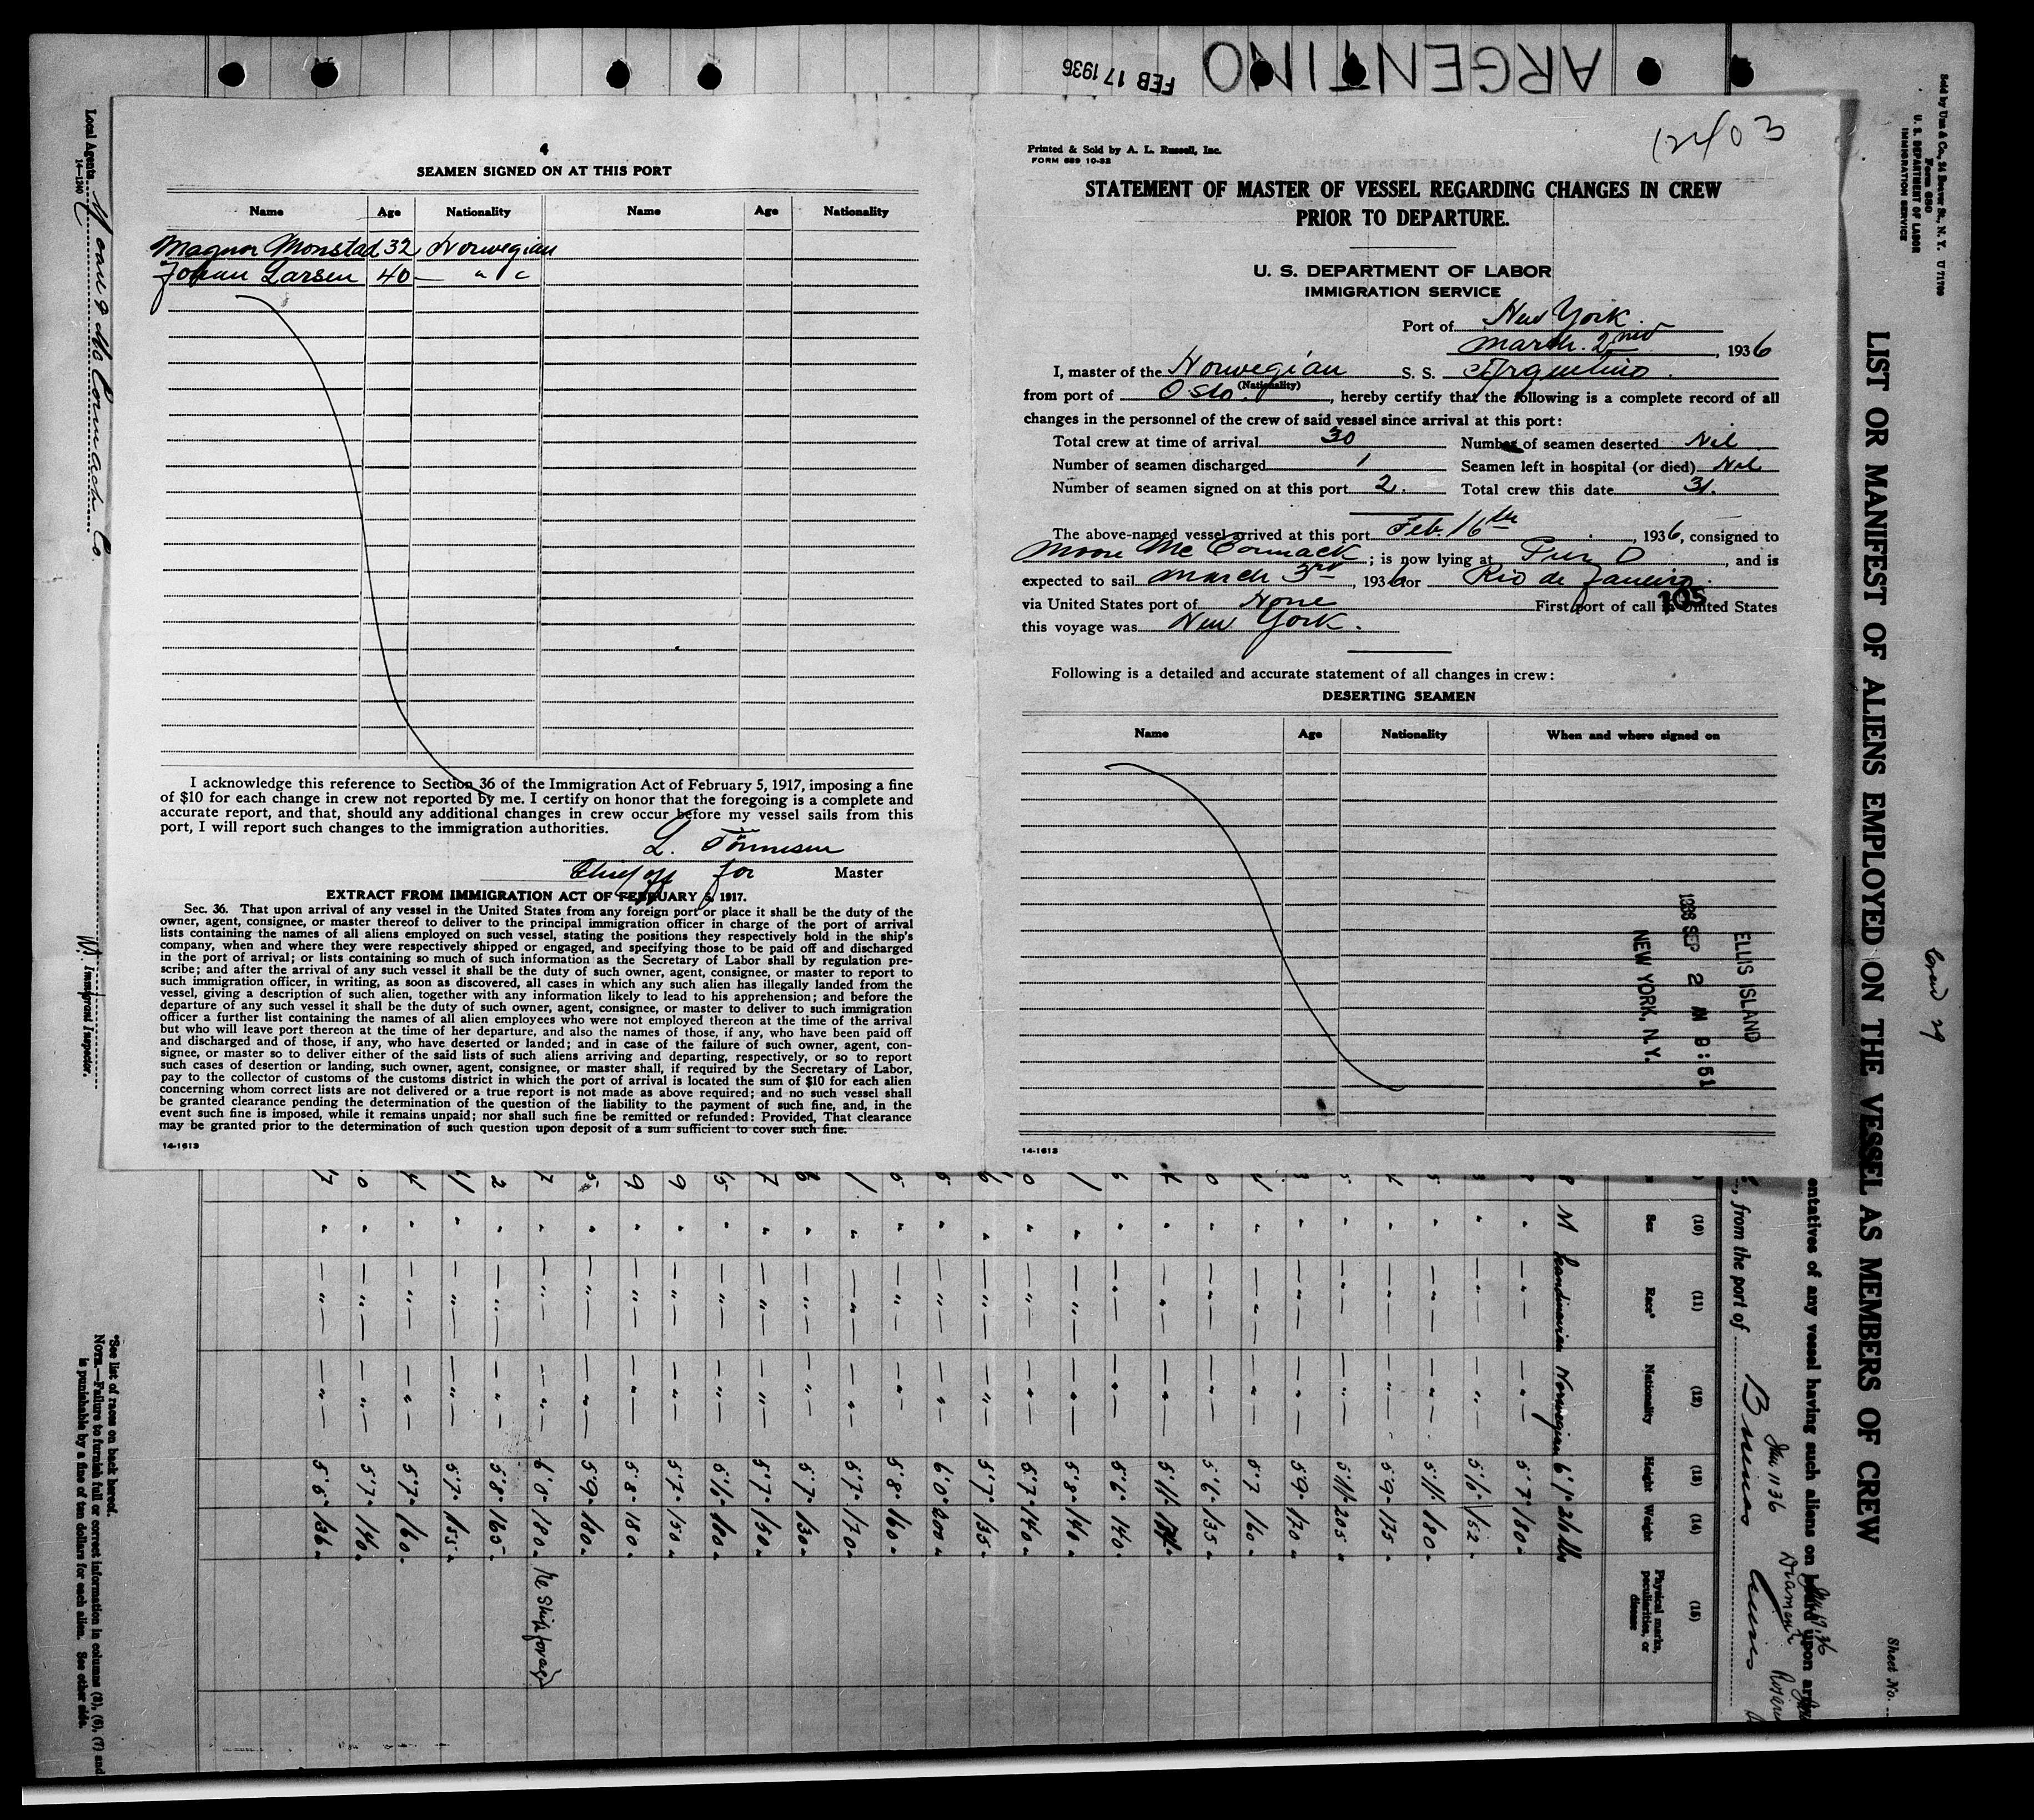 ARGENTINO
FEB 17 1936
4
SEAMEN SIGNED ON AT THIS PORT
Name Age Nationality Name Age Nationality
Magnor Monstad 32 Norwegian
Johan Larsen 40 — " —
I acknowledge this reference to Section 36 of the Immigration Act of February 5, 1917, imposing a fine
of $10 for each change in crew not reported by me. I certify on honor that the foregoing is a complete and
accurate report, and that, should any additional changes in crew occur before my vessel sails from this
port, I will report such changes to the immigration authorities.
L. Tönnesen
Chief off for Master
EXTRACT FROM IMMIGRATION ACT OF FEBRUARY 5, 1917.
Sec. 36. That upon arrival of any vessel in the United States from any foreign port or place it shall be the duty of the
owner, agent, consignee, or master thereof to deliver to the principal immigration officer in charge of the port of arrival
lists containing the names of all aliens employed on such vessel, stating the positions they respectively hold in the ship's
company, when and where they were respectively shipped or engaged, and specifying those to be paid off and discharged
in the port of arrival; or lists containing so much of such information as the Secretary of Labor shall by regulation pre-
scribe; and after the arrival of any such vessel it shall be the duty of such owner, agent, consignee, or master to report to
such immigration officer, in writing, as soon as discovered, all cases in which any such alien has illegally landed from the
vessel, giving a description of such alien, together with any information likely to lead to his apprehension; and before the
departure of any such vessel it shall be the duty of such owner, agent, consignee, or master to deliver to such immigration
officer a further list containing the names of all alien employees who were not employed thereon at the time of the arrival
but who will leave port thereon at the time of her departure, and also the names of those, if any, who have been paid off
and discharged and of those, if any, who have deserted or landed; and in case of the failure of such owner, agent, con-
signee, or master so to deliver either of the said lists of such aliens arriving and departing, respectively, or so to report
such cases of desertion or landing, such owner, agent, consignee, or master shall, if required by the Secretary of Labor,
pay to the collector of customs of the customs district in which the port of arrival is located the sum of $10 for each alien
concerning whom correct lists are not delivered or a true report is not made as above required; and no such vessel shall
be granted clearance pending the determination of the question of the liability to the payment of such fine, and, in the
event such fine is imposed, while it remains unpaid; nor shall such fine be remitted or refunded: Provided, That clearance
may be granted prior to the determination of such question upon deposit of a sum sufficient to cover such fine.
14-1613
12403
Printed & Sold by A. L. Russell, Inc.
FORM 689 10-32
STATEMENT OF MASTER OF VESSEL REGARDING CHANGES IN CREW
PRIOR TO DEPARTURE.
U. S. DEPARTMENT OF LABOR
IMMIGRATION SERVICE
Port of New York
March. 2nd, 1936
I, master of the Norwegian S. S. Argentino.
(Nationality)
from port of Oslo, hereby certify that the following is a complete record of all
changes in the personnel of the crew of said vessel since arrival at this port:
Total crew at time of arrival 30 Number of seamen deserted Nil
Number of seamen discharged 1 Seamen left in hospital (or died) Nil
Number of seamen signed on at this port 2. Total crew this date 31.
The above-named vessel arrived at this port Feb. 16th, 1936, consigned to
Moore Mc Cormack; is now lying at Pier D, and is
expected to sail March 3rd, 1936 for Rio de Janeiro.
105
via United States port of None First port of call in United States
this voyage was New York.
Following is a detailed and accurate statement of all changes in crew:
DESERTING SEAMEN
Name Age Nationality When and where signed on
ELLIS ISLAND
SEP 2 9:51
NEW YORK, N.Y.
14-1613
Local Agents
14-1240
Immigrant Inspector.
*See list of races on back hereof.
NOTE.—Failure to furnish full or correct information in columns (3), (6), (7) and
is punishable by a fine of ten dollars for each alien. See other side.
Sold by Unz & Co., 24 Beaver St., N. Y. U 71709
Form 680
U. S. DEPARTMENT OF LABOR
IMMIGRATION SERVICE
LIST OR MANIFEST OF ALIENS EMPLOYED ON THE VESSEL AS MEMBERS OF CREW
Crew 29
Sheet No.
entatives of any vessel having such aliens on board upon arr
, from the port of Buenos Aires
(10) (11) (12) (13) (14) (15)
Sex Race* Nationality Height Weight Physical marks, peculiarities, or disease
M Scandinavian Norwegian 6'1"
5'7" 180
152
5'11" 180
5'9" 175
5'11" 205
5'9" 170
5'7 160
5'6" 135
5'11"
5'6" 140
5'8" 146
5'7" 140
5'7" 135
6'0" 200
5'8" 160
5'7" 170
5'7" 130
5'7" 150
180
5'7" 150
5'8" 180
5'9" 180
6'0" 180
5'8" 165
5'7" 155
5'7" 160
5'7" 140
5'6" 136